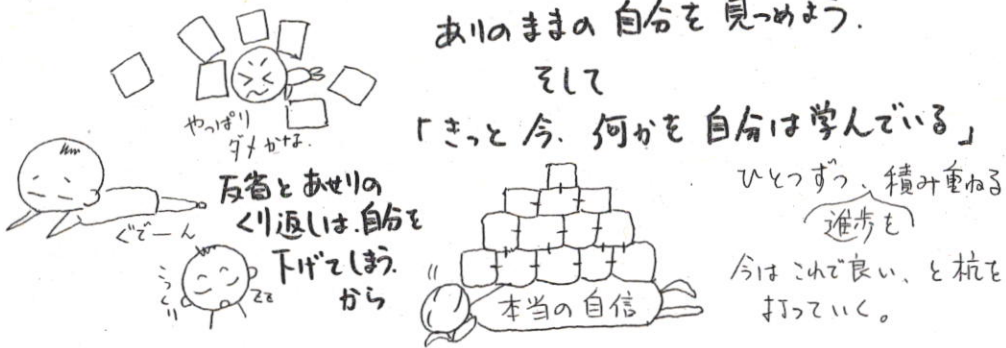 ありのままの自分を見つめよう.
そして
「きっと今、何かを自分は学んでいる」
やっぱり
ダメかな.
反省とあせりの
くり返しは、自分を
下げてしまう.
から
ぐでーん
zz
本当の自信
ひとつずつ、積み重ねる
進歩を
今はこれで良い、と杭を
打っていく。